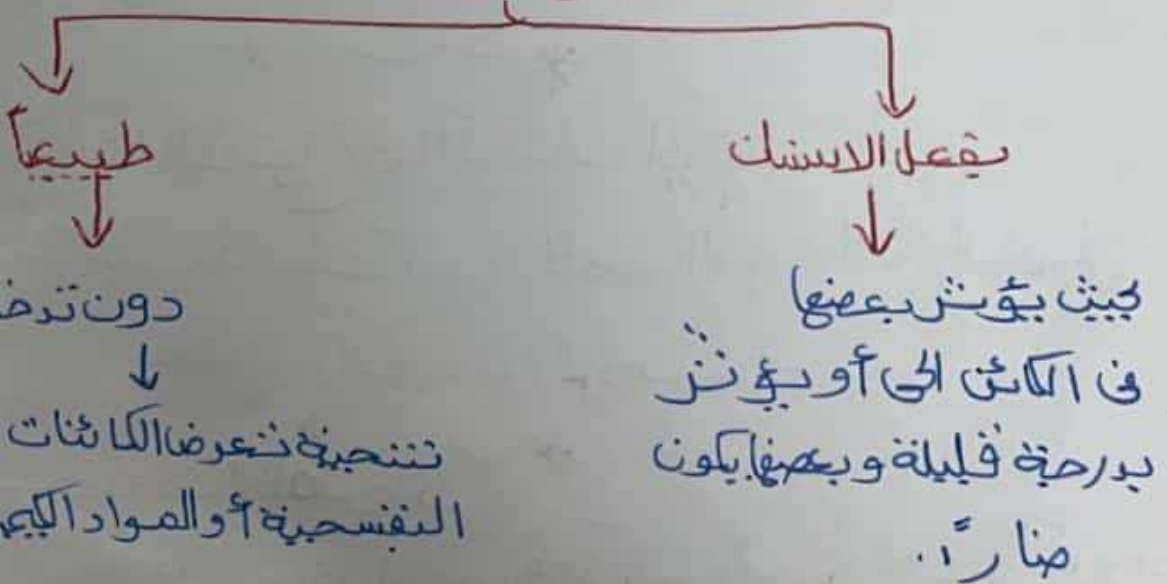 بفعل الانسان
طبيعياً
بحيث يؤثر بعضها
فى الكائن الحى أو يؤثر
بدرجة قليلة و بعضها يكون
ضاراً.
دون تدخ
↓
نتيجة تعرض الكائنات
البنفسجية أو المواد الكيم